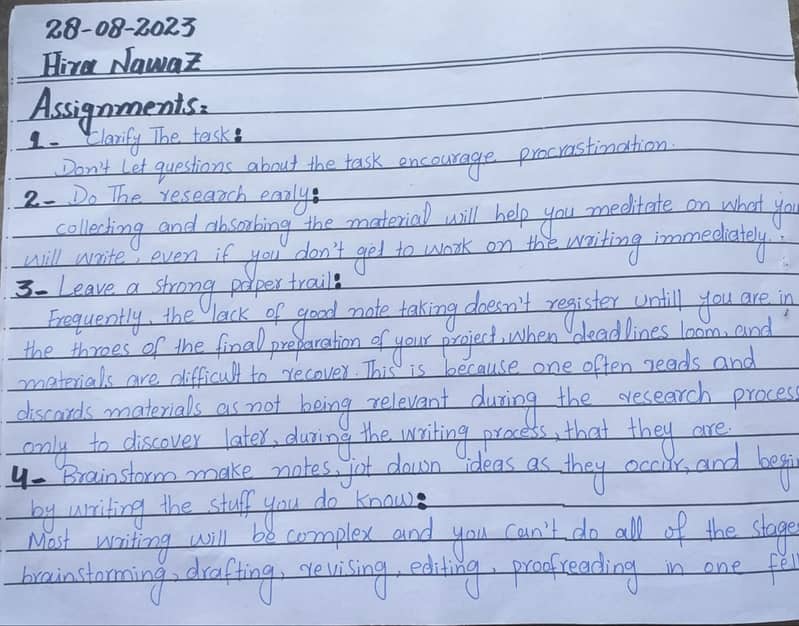 28-08-2023
Hira Nawaz
Assignments:
1- Clarify The task:
Don't Let questions about the task encourage procrastination.
2- Do The research early:
collecting and absorbing the material will help you meditate on what you
will write, even if you don't get to work on the writing immediately.
3- Leave a strong paper trail:
Frequently, the lack of good note taking doesn't register untill you are in
the throes of the final preparation of your project, when deadlines loom, and
materials are difficult to recover. This is because one often reads and
discards materials as not being relevant during the research process
only to discover later, during the writing process, that they are.
4- Brainstorm make notes, jot down ideas as they occur, and begin
by writing the stuff you do know:
Most writing will be complex and you can't do all of the stages
brainstorming, drafting, revising, editing, proofreading in one fell